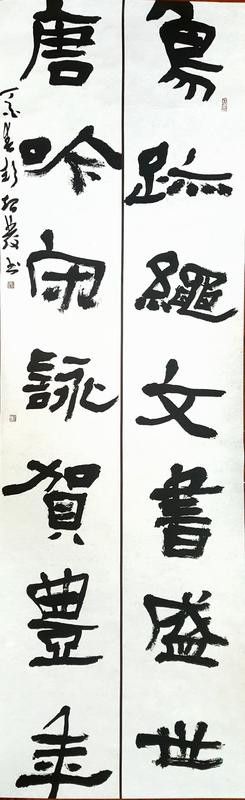 鳥跡繩文書盛世
唐吟宋詠賀豐年